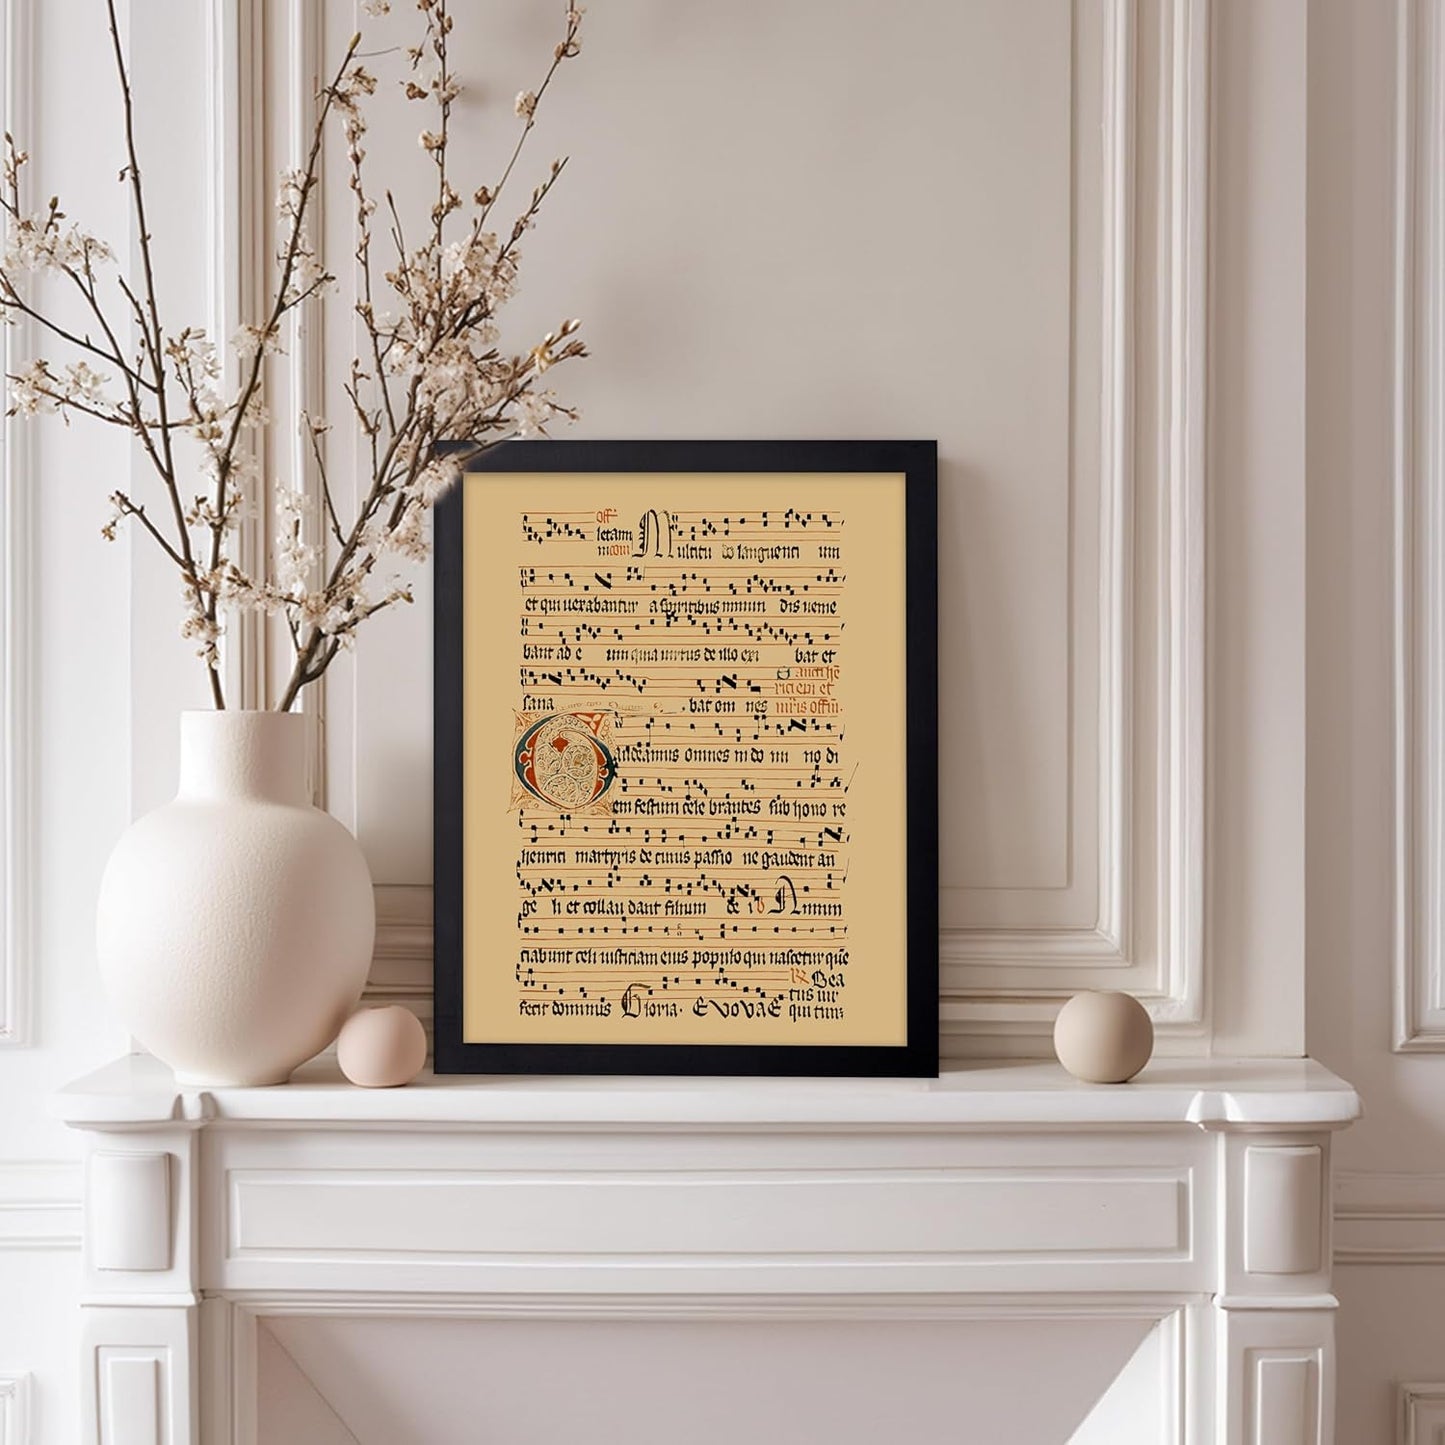 off
letamini
in com
Multitu do languenti um
et qui vexabantur a spiritibus inmun dis venie
bant ad e um quia virtus de illo exi bat et
Sancti he
rici epi et
sana bat om nes mris offm.
Gaudeamus omnes in do mi no di
em festum cele brantes sub hono re
henrici martyris de cuius passio ne gaudent an
ge li et collau dant filium de i Annun
ciabunt celi iusticiam eius populo qui nascetur que
Bea
tus vir
fecit dominus Gloria. EVOVAE qui tim